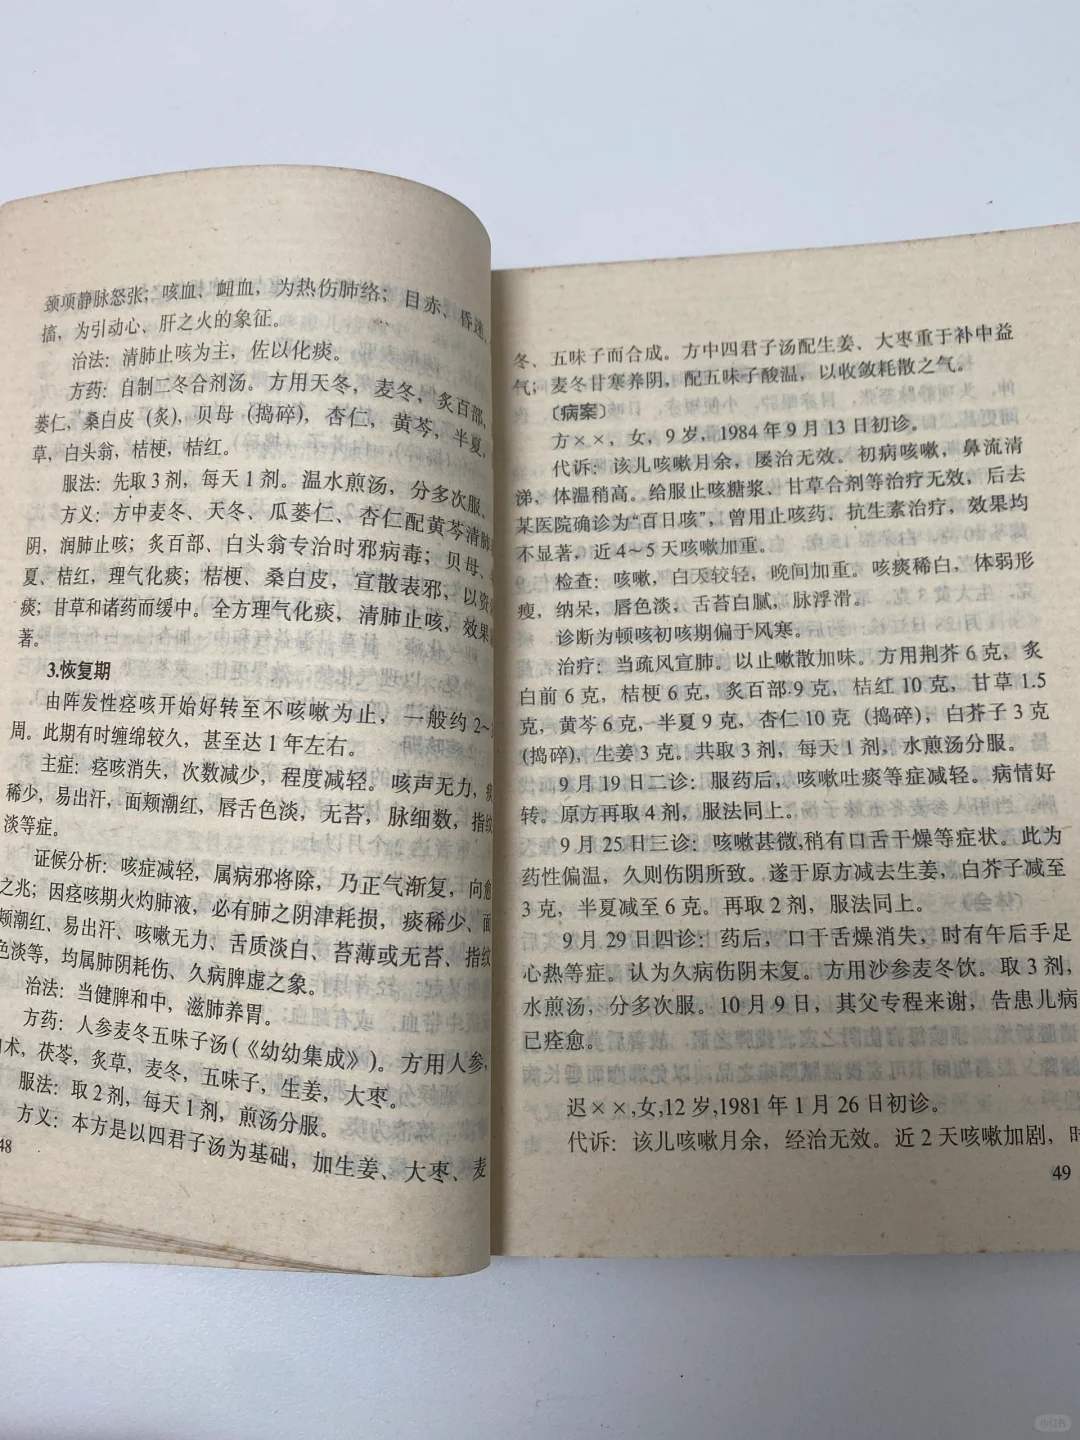 颈项静脉怒张；咳血、衄血，为热伤肺络；目赤、昏迷、
搐，为引动心、肝之火的象征。
治法：清肺止咳为主，佐以化痰。
方药：自制二冬合剂汤。方用天冬，麦冬，炙百部，
蒌仁，桑白皮（炙），贝母（捣碎），杏仁，黄芩，半夏，
草，白头翁，桔梗，桔红。
服法：先取3剂，每天1剂。温水煎汤，分多次服。
方义：方中麦冬、天冬、瓜蒌仁、杏仁配黄芩清肺
阴，润肺止咳；炙百部、白头翁专治时邪病毒；贝母、
夏、桔红，理气化痰；桔梗、桑白皮，宣散表邪，以资
痰；甘草和诸药而缓中。全方理气化痰，清肺止咳，效果
著。
3.恢复期
由阵发性痉咳开始好转至不咳嗽为止，一般约2~
周。此期有时缠绵较久，甚至达1年左右。
主症：痉咳消失，次数减少，程度减轻。咳声无力，痰
稀少，易出汗，面颊潮红，唇舌色淡，无苔，脉细数，指纹
淡等症。
证候分析：咳症减轻，属病邪将除，乃正气渐复，向愈
之兆；因痉咳期火灼肺液，必有肺之阴津耗损，痰稀少、面
颊潮红、易出汗、咳嗽无力、舌质淡白、苔薄或无苔、指纹
色淡等，均属肺阴耗伤、久病脾虚之象。
治法：当健脾和中，滋肺养胃。
方药：人参麦冬五味子汤(《幼幼集成》)。方用人参，
术，茯苓，炙草，麦冬，五味子，生姜，大枣。
服法：取2剂，每天1剂，煎汤分服。
方义：本方是以四君子汤为基础，加生姜、大枣、麦
48
冬、五味子而合成。方中四君子汤配生姜、大枣重于补中益
气；麦冬甘寒养阴，配五味子酸温，以收敛耗散之气。
〔病案〕
方××，女，9岁，1984年9月13日初诊。
代诉：该儿咳嗽月余，屡治无效。初病咳嗽，鼻流清
涕，体温稍高。给服止咳糖浆、甘草合剂等治疗无效，后去
某医院确诊为“百日咳”，曾用止咳药、抗生素治疗，效果均
不显著，近4~5天咳嗽加重。
检查：咳嗽，白天较轻，晚间加重。咳痰稀白，体弱形
瘦，纳呆，唇色淡，舌苔白腻，脉浮滑。
诊断为顿咳初咳期偏于风寒。
治疗：当疏风宣肺。以止嗽散加味。方用荆芥6克，炙
白前6克，桔梗6克，炙百部9克，桔红10克，甘草1.5
克，黄芩6克，半夏9克，杏仁10克（捣碎），白芥子3克
(捣碎)，生姜3克。共取3剂，每天1剂，水煎汤分服。
9月19日二诊：服药后，咳嗽吐痰等症减轻。病情好
转。原方再取4剂，服法同上。
9月25日三诊：咳嗽甚微，稍有口舌干燥等症状。此为
药性偏温，久则伤阴所致。遂于原方减去生姜，白芥子减至
3克，半夏减至6克。再取2剂，服法同上。
9月29日四诊：药后，口干舌燥消失，时有午后手足
心热等症。认为久病伤阴未复。方用沙参麦冬饮。取3剂，
水煎汤，分多次服。10月9日，其父专程来谢，告患儿病
已痊愈。
迟××，女，12岁，1981年1月26日初诊。
代诉：该儿咳嗽月余，经治无效。近2天咳嗽加剧，时
49